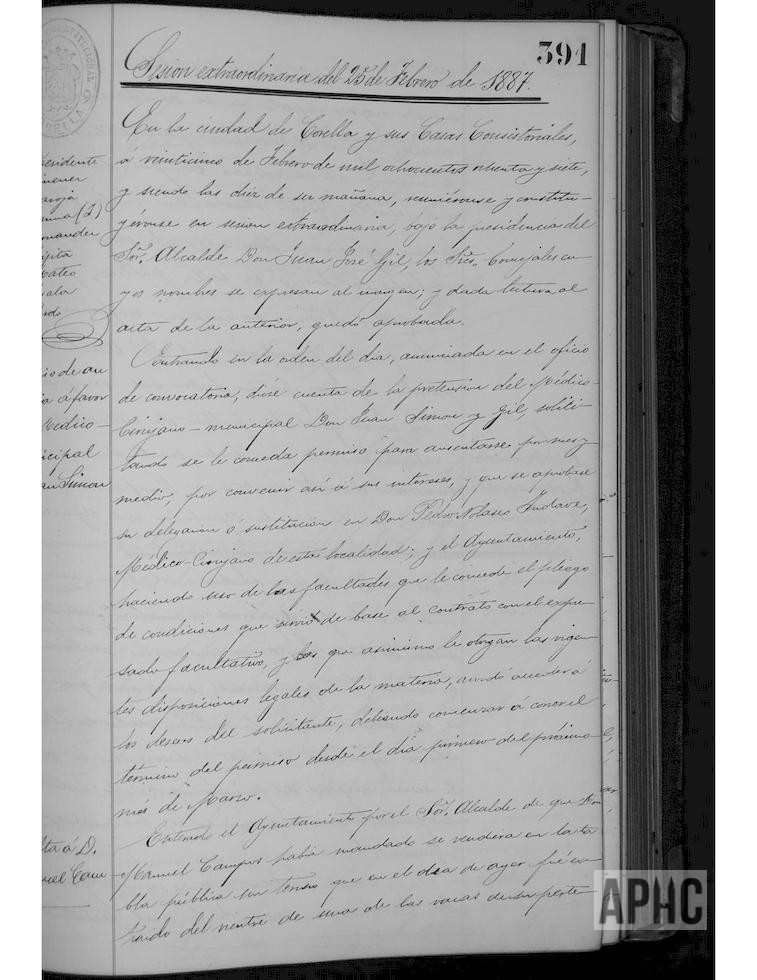 391
Sesion extraordinaria del 25 de Febrero de 1887.
En la ciudad de Corella y sus Casas Consistoriales,
á veinticinco de Febrero de mil ochocientos ochenta y siete,
y siendo las diez de su mañana, reuniéronse y constitu-
yéronse en sesion extraordinaria, bajo la presidencia del
Sor. Alcalde Don Juan José Gil, los Sres. Concejales cu-
yos nombres se expresan al margen; y dada lectura al
acta de la anterior, quedó aprobada.
Entrando en la orden del dia, anunciada en el oficio
de convocatoria, dióse cuenta de la pretension del Médico-
Cirujano-municipal Don Juan Simon y Gil, solici-
tando se le conceda permiso para ausentarse por mes y
medio, por convenir asi á sus intereses, y que se aprobase
su delegacion ó sustitucion en Don Pedro Nolasco
Médico-Cirujano de esta localidad; y el Ayuntamiento,
haciendo uso de las facultades que le concede el pliego
de condiciones que sirvió de base al contrato con el expre-
sado facultativo, y las que asimismo le otorgan las vigen-
tes disposiciones legales de la materia, acordó acceder á
los deseos del solicitante, debiendo comenzar á correr el
término del permiso desde el dia primero del próximo
mes de Marzo.
Enterado el Ayuntamiento por el Sor. Alcalde de que Don
Manuel Campos habia mandado se vendiera en la ta
bla pública un que en el dia de ayer fué ex-
traido del vientre de una de las vacas de su perte-
esidente
(2)
nandez
Mateo
io de au
ia á favor
Médico-
icipal
an Simon
lta á D.
nuel Cam
APHC